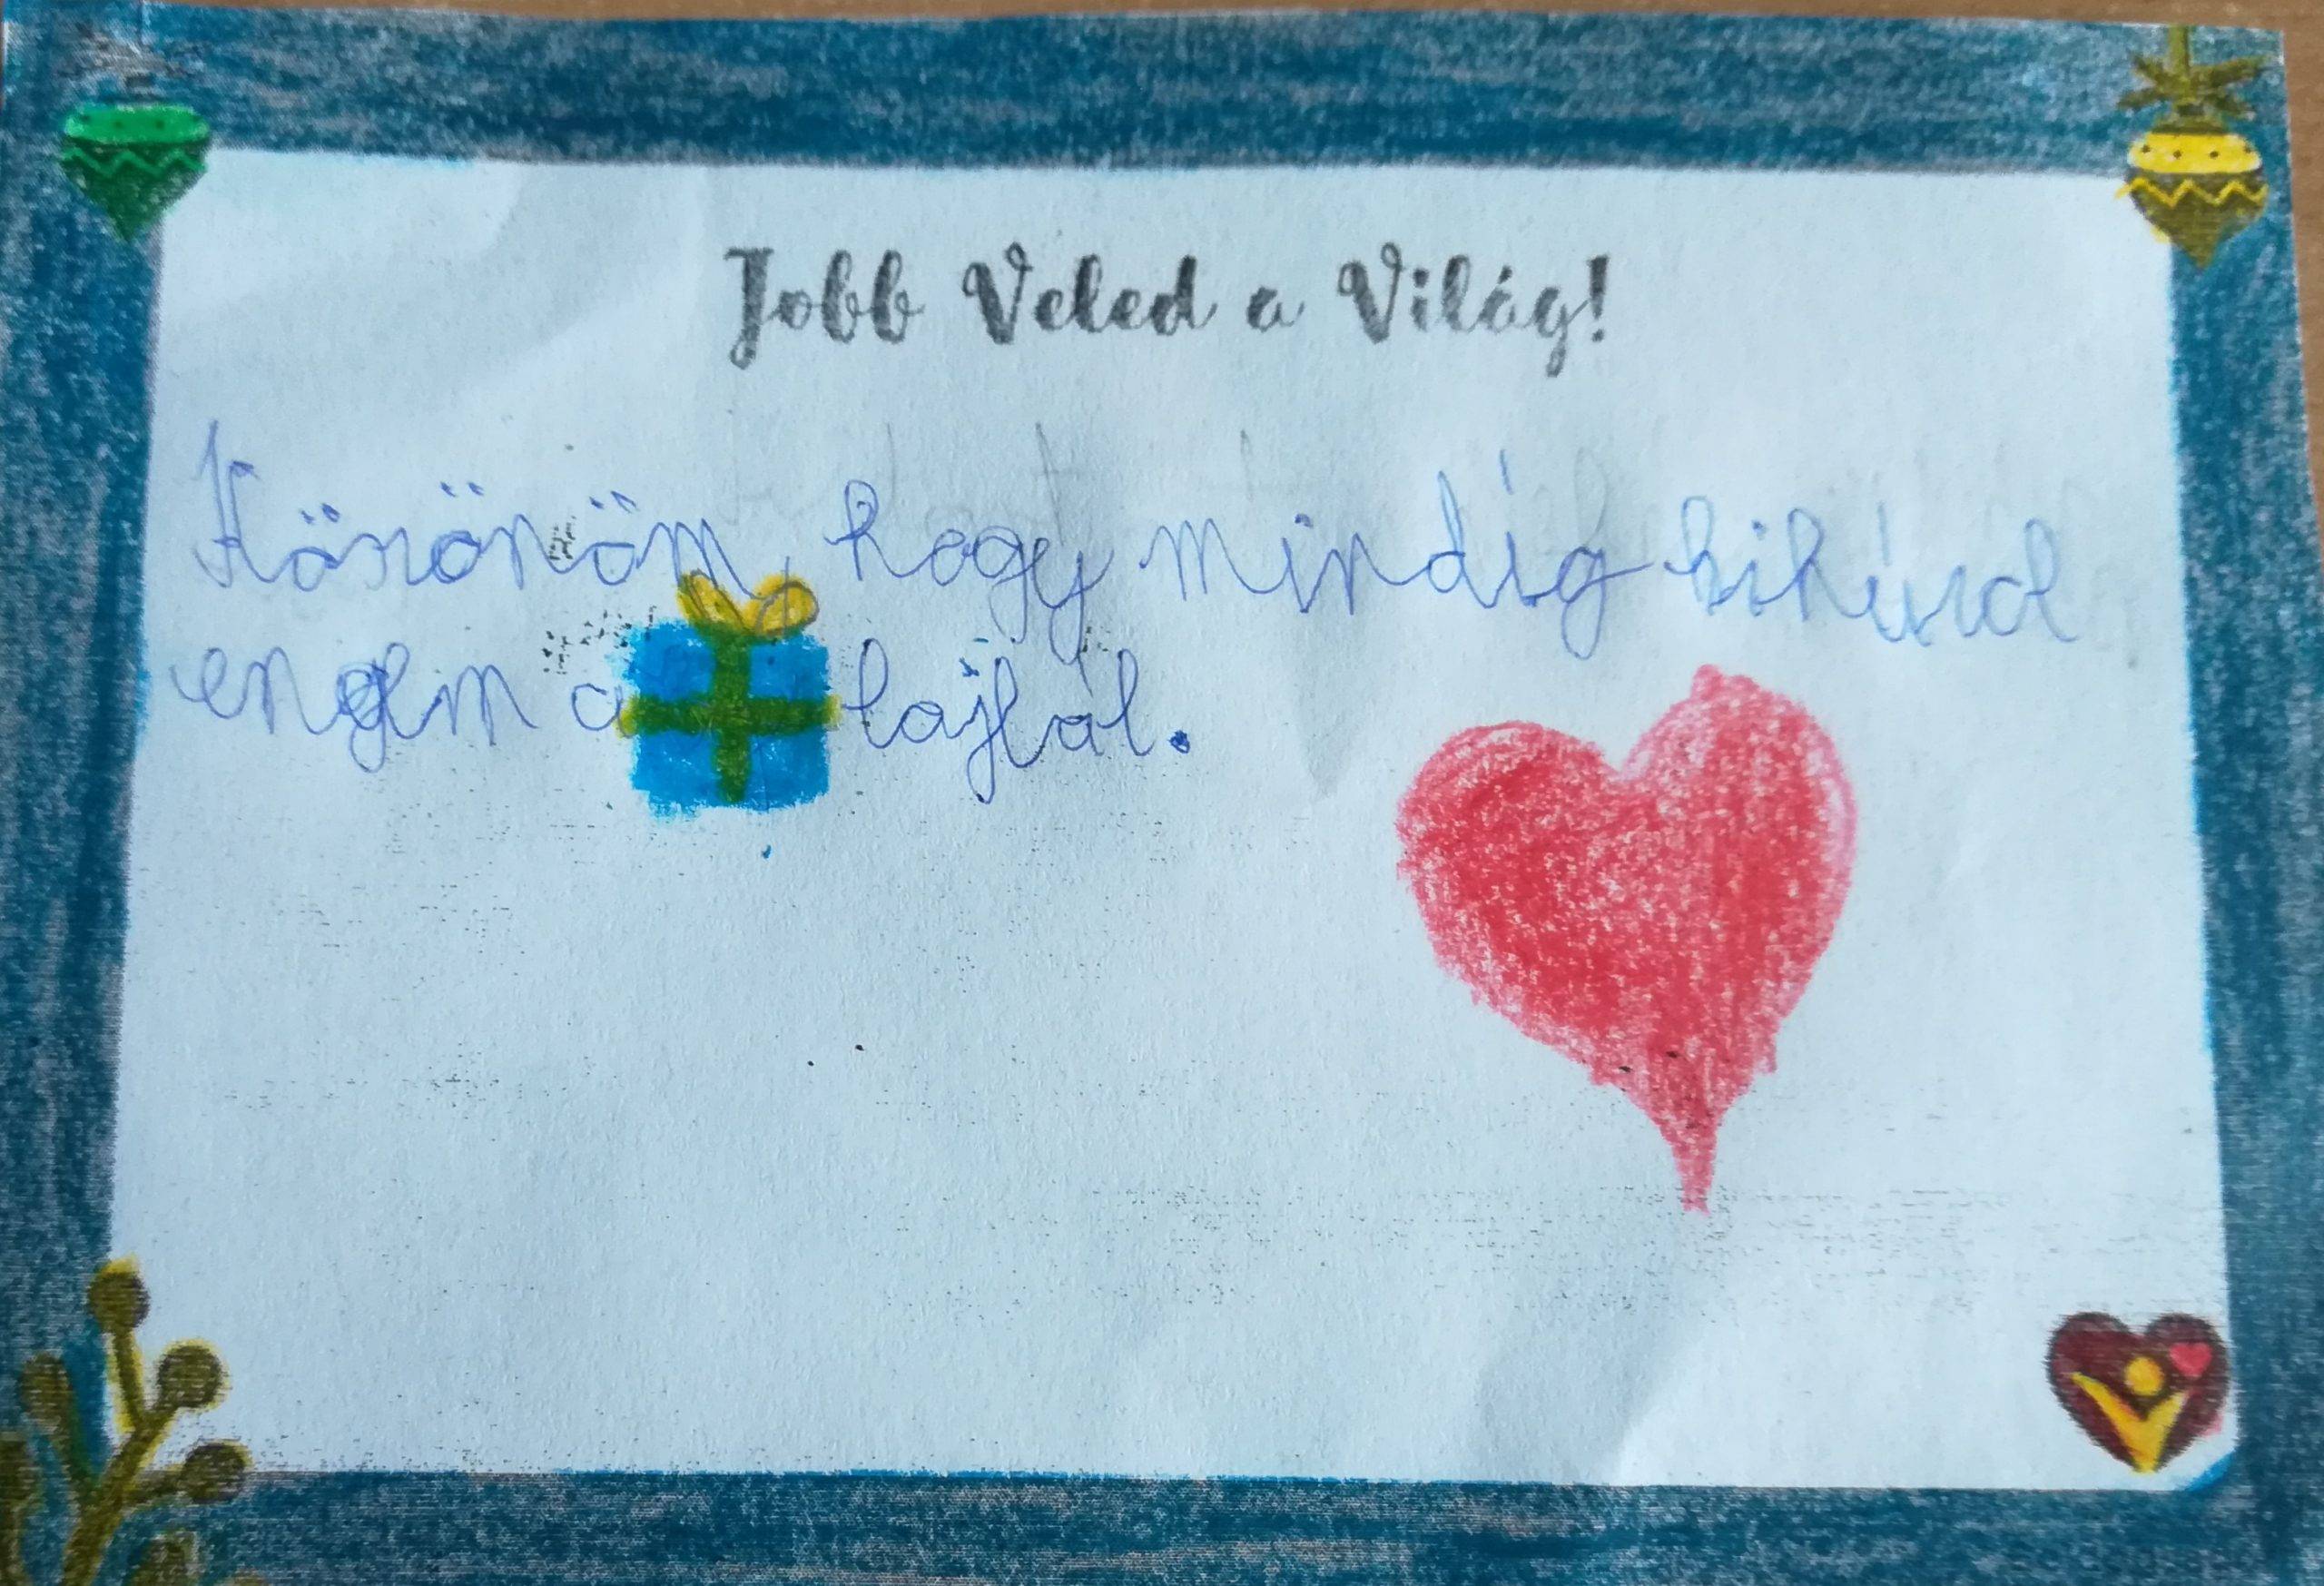 Jobb Veled a Világ!
Köszönöm, hogy mindíg kihúzol
engem a bajból.